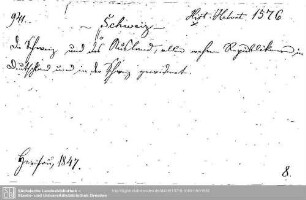 941. – Schweiz – Hist. Helvet. 1576
Die Schweiz und das Ausland, allen wahren Republikanern in
Deutschland und in der Schweiz gewidmet.
Herisau, 1847. 8.
Sächsische Landesbibliothek -
Staats- und Universitätsbibliothek Dresden